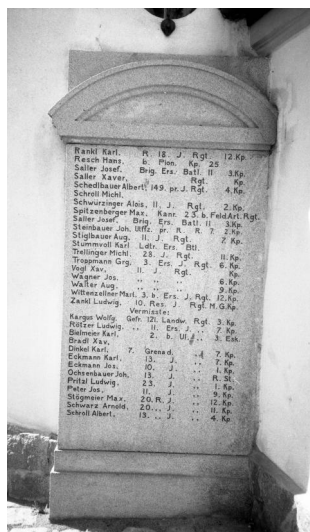 Rankl Karl. R. 18. J. Rgt. 12. Kp.
Resch Hans. b. Pion. Kp. 25
Saller Josef. Brig. Ers. Batl. 11 3. Kp.
Saller Xaver. Rgt. Kp.
Schedlbauer Albert. 149. pr. J. Rgt. 4. Kp.
Schroll Michl.
Schwürzinger Alois, 11. J. Rgt. 2. Kp.
Spitzenberger Max. Kanr. 23. b. Feld Art. Rgt.
Saller Josef. Brig. Ers. Batl. 11 3. Kp.
Steinbauer Joh. Utffz. pr. R. R. 7 2. Kp.
Stiglbauer Aug. 11. J. Rgt. 7. Kp.
Stummvoll Karl Ldtr. Ers. Btl.
Trellinger Michl. 28. J. Rgt. 11. Kp.
Troppmann Grg. 3. Ers. J. Rgt. 6. Kp.
Vogl Xav. 11. J. Rgt. Kp.
Wagner Jos. " " " 6. Kp.
Walter Aug. " " " 9. Kp.
Wittenzellner Mart. 3. b. Ers. J. Rgt. 12. Kp.
Zankl Ludwig. 10. Res. J. Rgt. M.G. Kp.
Vermisste:
Kargus Wolfg. Gefr. 121. Landw. Rgt. 3. Kp.
Rötzer Ludwig. .. 11. Ers. J. .. 7. Kp.
Bielmeier Karl. 2. b. Ul. 3. Esk.
Bradl Xav.
Dinkel Karl. 7. Grenad. 7. Kp.
Eckmann Karl. 13. J. .. 7. Kp.
Eckmann Jos. 10. J. .. 1. Kp.
Ochsenbauer Joh. 13. J. .. R. St.
Pritzl Ludwig. 23. J. .. 1. Kp.
Peter Jos. 11. J. .. 9. Kp.
Stögmeier Max. 20. R. J. .. 12. Kp.
Schwarz Arnold. 20... J .. 11. Kp.
Schroll Albert. 13. .. J .. 4. Kp.